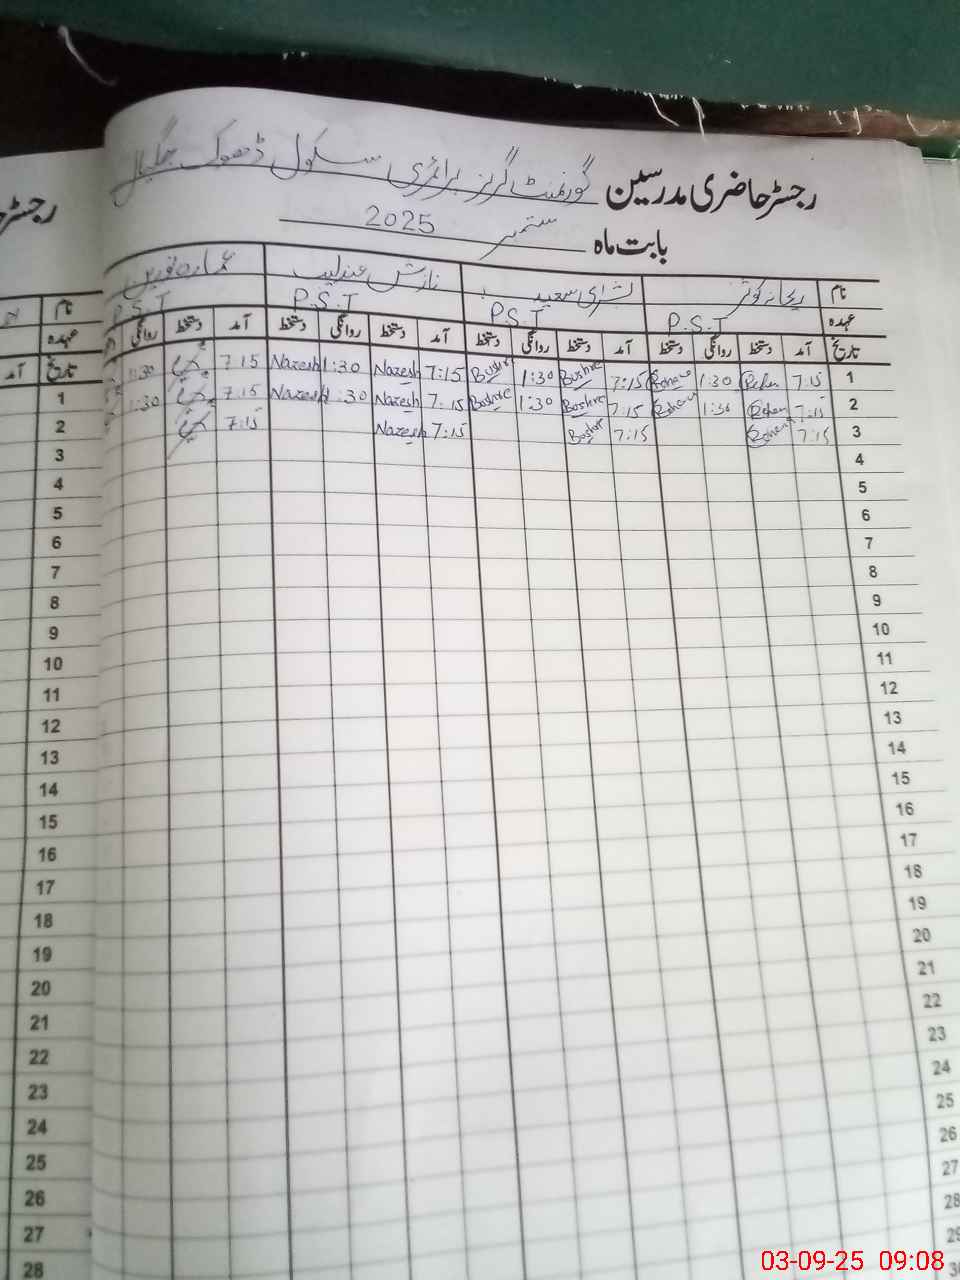 رجسٹر حاضری مدرسین گورنمنٹ گرلز پرائمری سکول ڈھوک
بابت ماہ ستمبر 2025
نام ریحانہ کوثر بشریٰ سعید نازش عندلیب عمارہ نورین
عہدہ P.S.T P.S.T P.S.T P.S.T
تاریخ آمد دستخط روانگی دستخط آمد دستخط روانگی دستخط آمد دستخط روانگی دستخط آمد دستخط روانگی
1 7:15 1:30 7:15 Boshre 1:30 Boshr 7:15 Nazesh 1:30 Nazesh 7:15 1:30
2 7:15 1:30 7:15 Boshre 1:30 Boshre 7:15 Nazesh 1:30 Nazesh 7:15 1:30
3 7:15 7:15 Boshr 7:15 Nazesh 7:15
4
5
6
7
8
9
10
11
12
13
14
15
16
17
18
19
20
21
22
23
24
25
26
27
28
29
رجسٹر
نام
عہدہ
تاریخ آمد
1
2
3
4
5
6
7
8
9
10
11
12
13
14
15
16
17
18
19
20
21
22
23
24
25
26
27
28
03-09-25 09:08